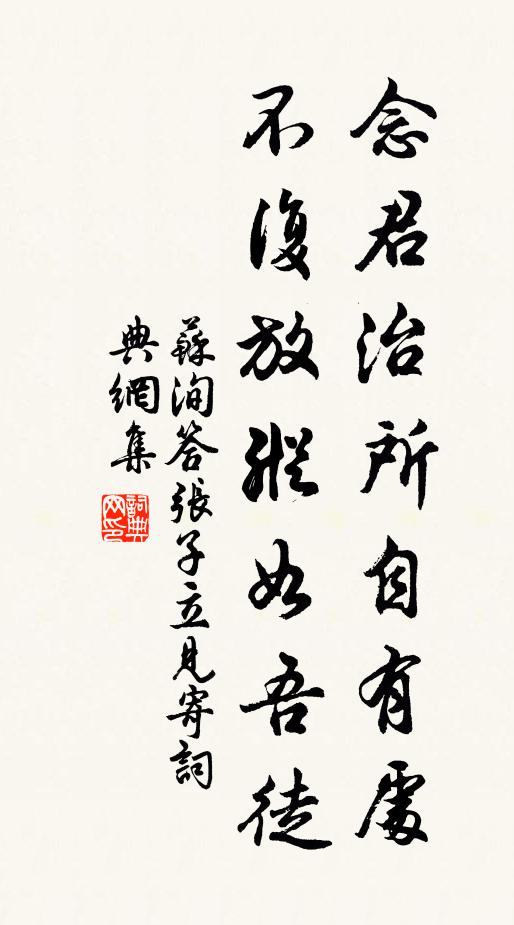 念君治所自有處
不復放縱如吾徒
蘇洵答張子立見寄詞
典網集
詞典網印